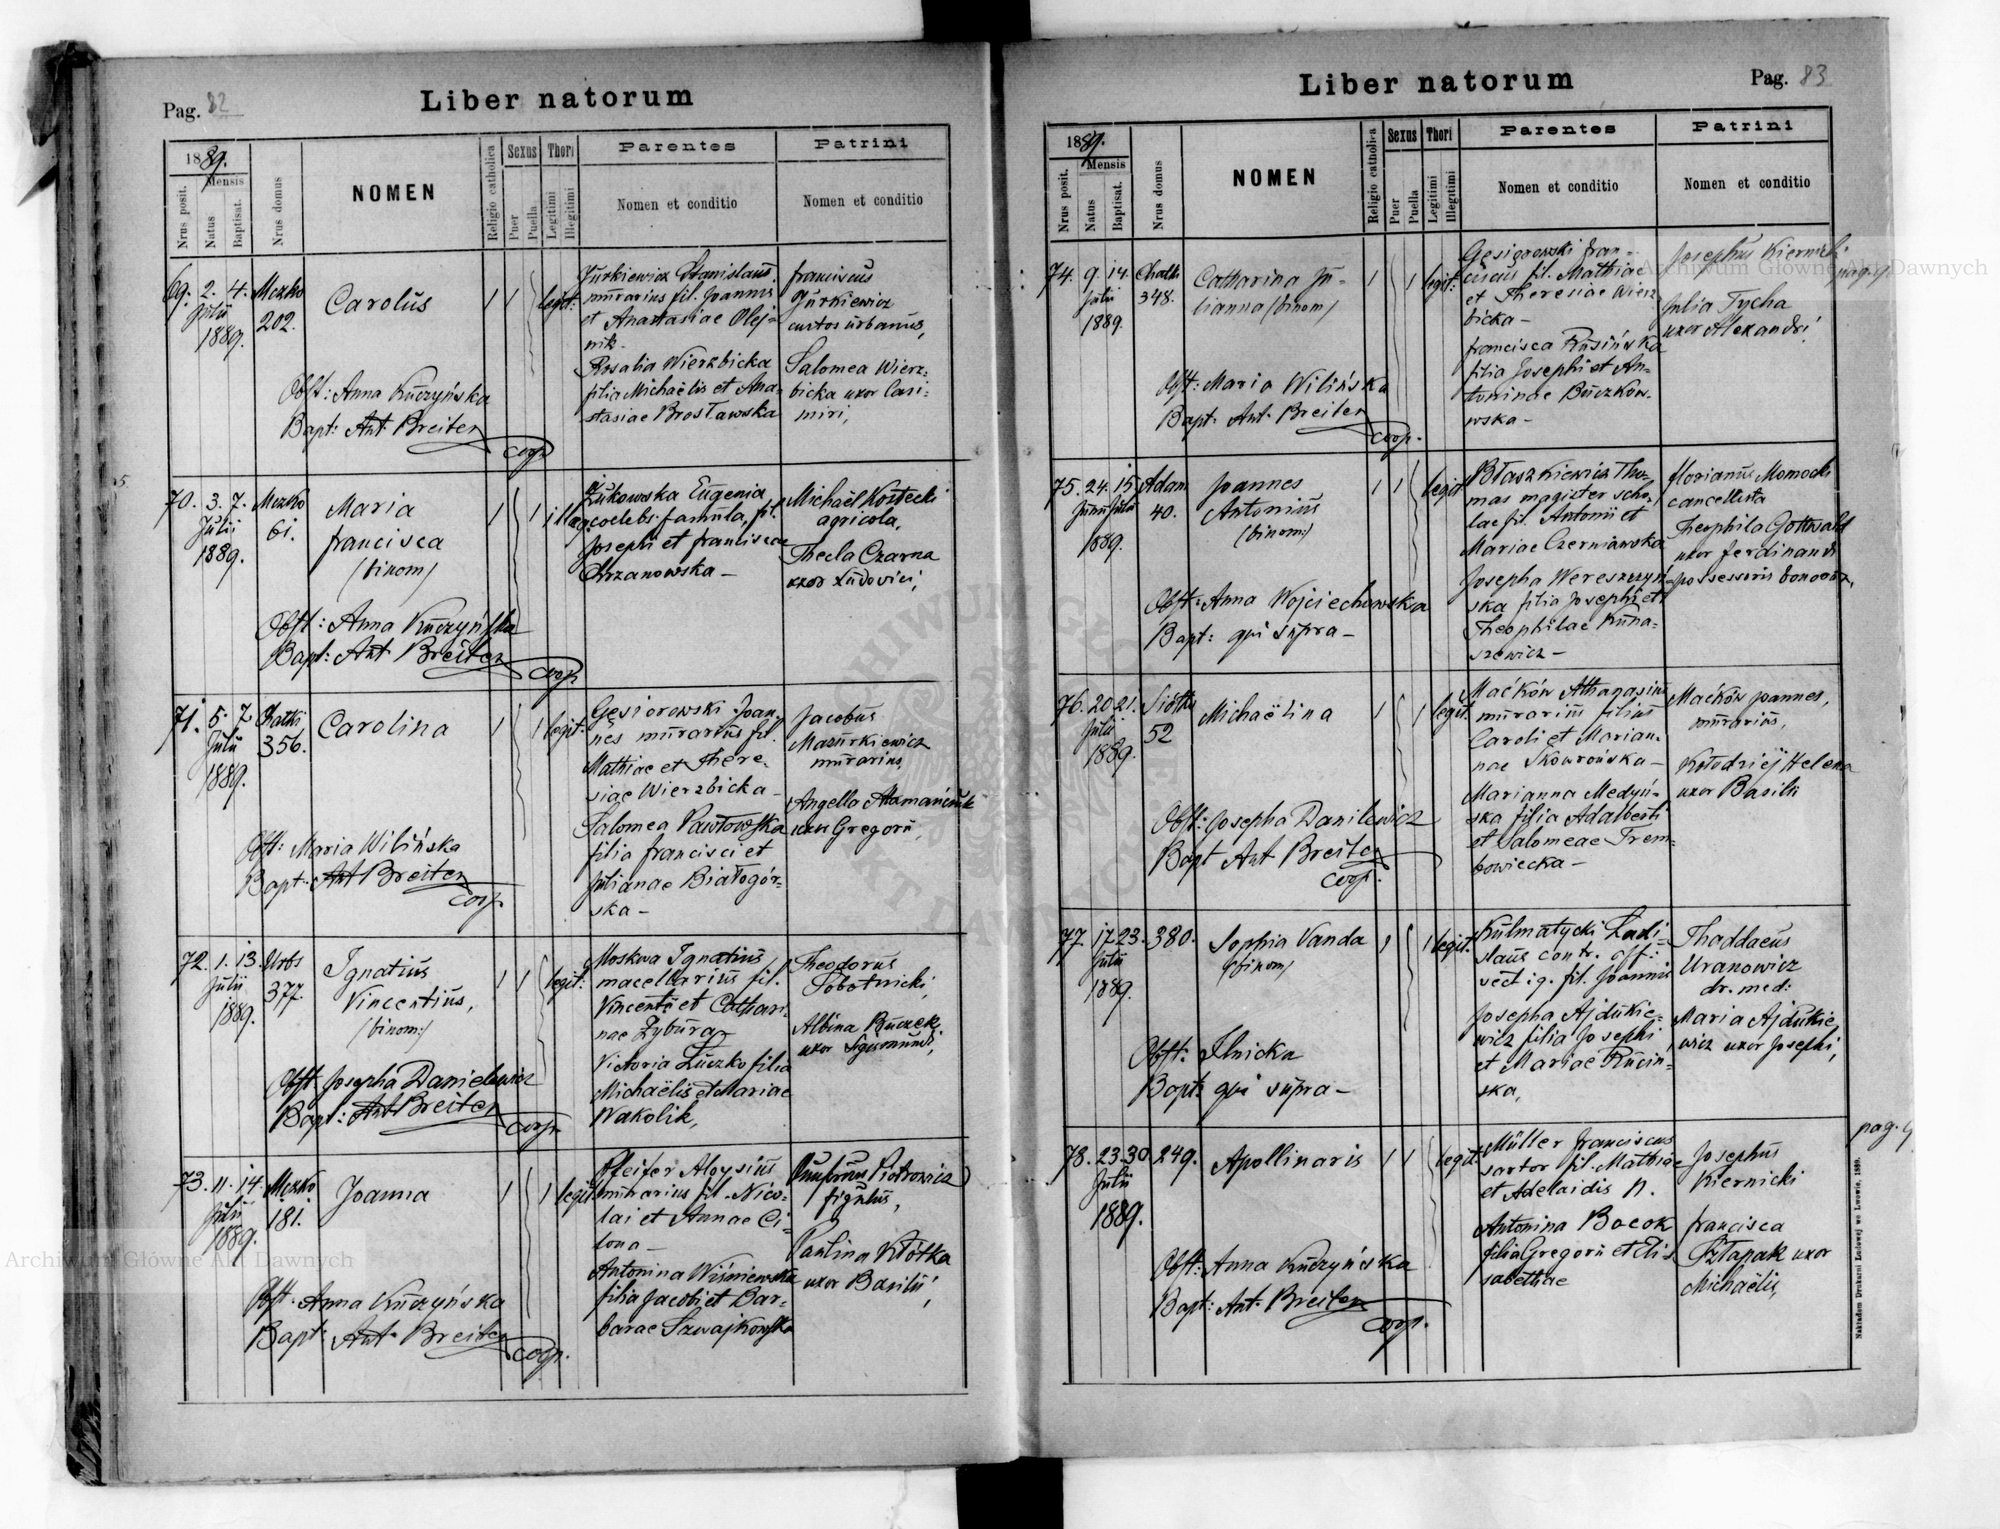 Pag. 82
Liber natorum
1889.
Mensis
Nrus posit.
Natus
Baptisat.
Nrus domus
NOMEN
Religio catholica
Sexus
Puer
Puella
Thori
Legitimi
Illegitimi
Parentes
Nomen et conditio
Patrini
Nomen et conditio
69. 2. 4. Julii 1889.
202.
Carolus
legit:
Jurkiewicz Stanislaus
murarius fil. Joannis
et Anastasiae Olej-
nik-
Rosalia Wierzbicka
filia Michaëlis et Ana-
stasiae Brosławska
Franciscus
Jurkiewicz
custos urbanus,
Salomea Wierz-
bicka uxor Casi-
miri,
Obst: Anna Kuczyńska
Bapt: Ant. Breiter
coop.
70. 3. 7. Julii 1889.
61.
Maria
Francisca
(binom)
illeg.
Żukowska Eugenia
coelebs famula, fil.
Josephi et Franciscae
Chrzanowska -
Michaël Kostecki
agricola,
Thecla Czarna
uxor Ludovici,
Obst: Anna Kuczyńska
Bapt: Ant. Breiter
coop.
71. 5. 7. Julii 1889.
356.
Carolina
legit:
Gęsiorowski Joan-
nes murarius fil.
Mathiae et There-
siae Wierzbicka -
Salomea Pawłowska
filia Francisci et
Julianae Białogór-
ska -
Jacobus
Mazurkiewicz
murarius
Angella
uxor Gregorii,
Obst: Maria Wilińska
Bapt: Ant Breiter
coop.
72. 1. 13. Julii 1889.
Urbs
377.
Ignatius
Vincentius,
(binom:)
legit:
Moskwa Ignatius
macellarius fil.
Vincentii et Cathari-
nae Zybura
Victoria Łuczko filia
Michaëlis et Mariae
Wakolik,
Theodorus
Sobotnicki,
Albina Buczek
uxor Sigismundi,
Obst Josepha Danielewicz
Bapt: Ant Breiter
coop.
73. 11. 14. Julii 1889.
181.
Joanna
legit
Pleifer Aloysius
murarius fil. Nico-
lai et Annae Ci-
Antonina Wiśniewska
filia Jacobi et Bar-
barae Szwajkowska
Piotrowicz
figulus,
Paulina Kłótka
uxor Basilii,
Obst. Anna Kuczyńska
Bapt: Ant. Breiter
coop.
Liber natorum
Pag. 83
1889.
Mensis
Nrus posit.
Natus
Baptisat.
Nrus domus
NOMEN
Religio catholica
Sexus
Puer
Puella
Thori
Legitimi
Illegitimi
Parentes
Nomen et conditio
Patrini
Nomen et conditio
74. 9. 14. Julii 1889.
348.
Catharina Ju-
lianna (binom)
legit:
Gęsiorowski Fran-
ciscus fil. Mathiae
et Theresiae Wierz
bicka -
Francisca Rusińska
filia Josephi et An-
toninae Buczkow-
ska -
Josephus Kiernicki
Julia Tycha
uxor Alexandri,
Obst: Maria Wilińska
Bapt. Ant. Breiter
coop.
75. 24. 15. Junii Julii 1889.
Adam
40.
Joannes
Antonius
(binom:)
legit
Błaszkiewicz Tho-
mas magister scho-
lae fil. Antonii et
Mariae Czerniawska
Josepha Wereszczyń-
ska filia Josephi et
Theophilae Kuna-
szewicz -
Florianus Momocki
cancellista
Theophila Gottwald
uxor Ferdinandi
possessoris bonorum,
Obst: Anna Wojciechowska
Bapt: qui supra -
76. 20. 21. Julii 1889.
52
Michaëlina
legit
Maćków Athanasius
murarius filius
Caroli et Marian-
nae Skowrońska -
Marianna Medyń-
ska filia Adalberti
et Salomeae Trem-
bowiecka -
Maćków Joannes,
murarius,
Kołodziéj Helena
uxor Basilii
Obst: Josepha Danilewicz
Bapt Ant Breiter
coop.
77. 17. 23. Julii 1889.
380.
Sophia Vanda
(binom)
legit.
Kulmatycki Ladi-
slaus contr. off.
vect:g. fil. Joannis
Josepha Ajdukie-
wicz filia Josephi
et Mariae Rucin-
ska,
Thaddaeus
Uranowicz
dr. med:
Maria Ajdukie
wicz uxor Josephi,
Obst: Ilnicka
Bapt: qui supra -
78. 23. 30. Julii 1889.
249.
Apollinaris
legit.
Müller Franciscus
sartor fil. Mathiae
et Adelaidis N.
Antonina Bocok
filia Gregorii et Eli-
sabethae
Josephus
Kiernicki
Francisca
Szłapak uxor
Michaëlis,
pag. 9
Obst: Anna Kuczyńska
Bapt: Ant. Breiter
coop.
Nakładem Drukarni Ludowej we Lwowie, 1889.
Archiwum Główne Akt Dawnych
Archiwum Główne Akt Dawnych